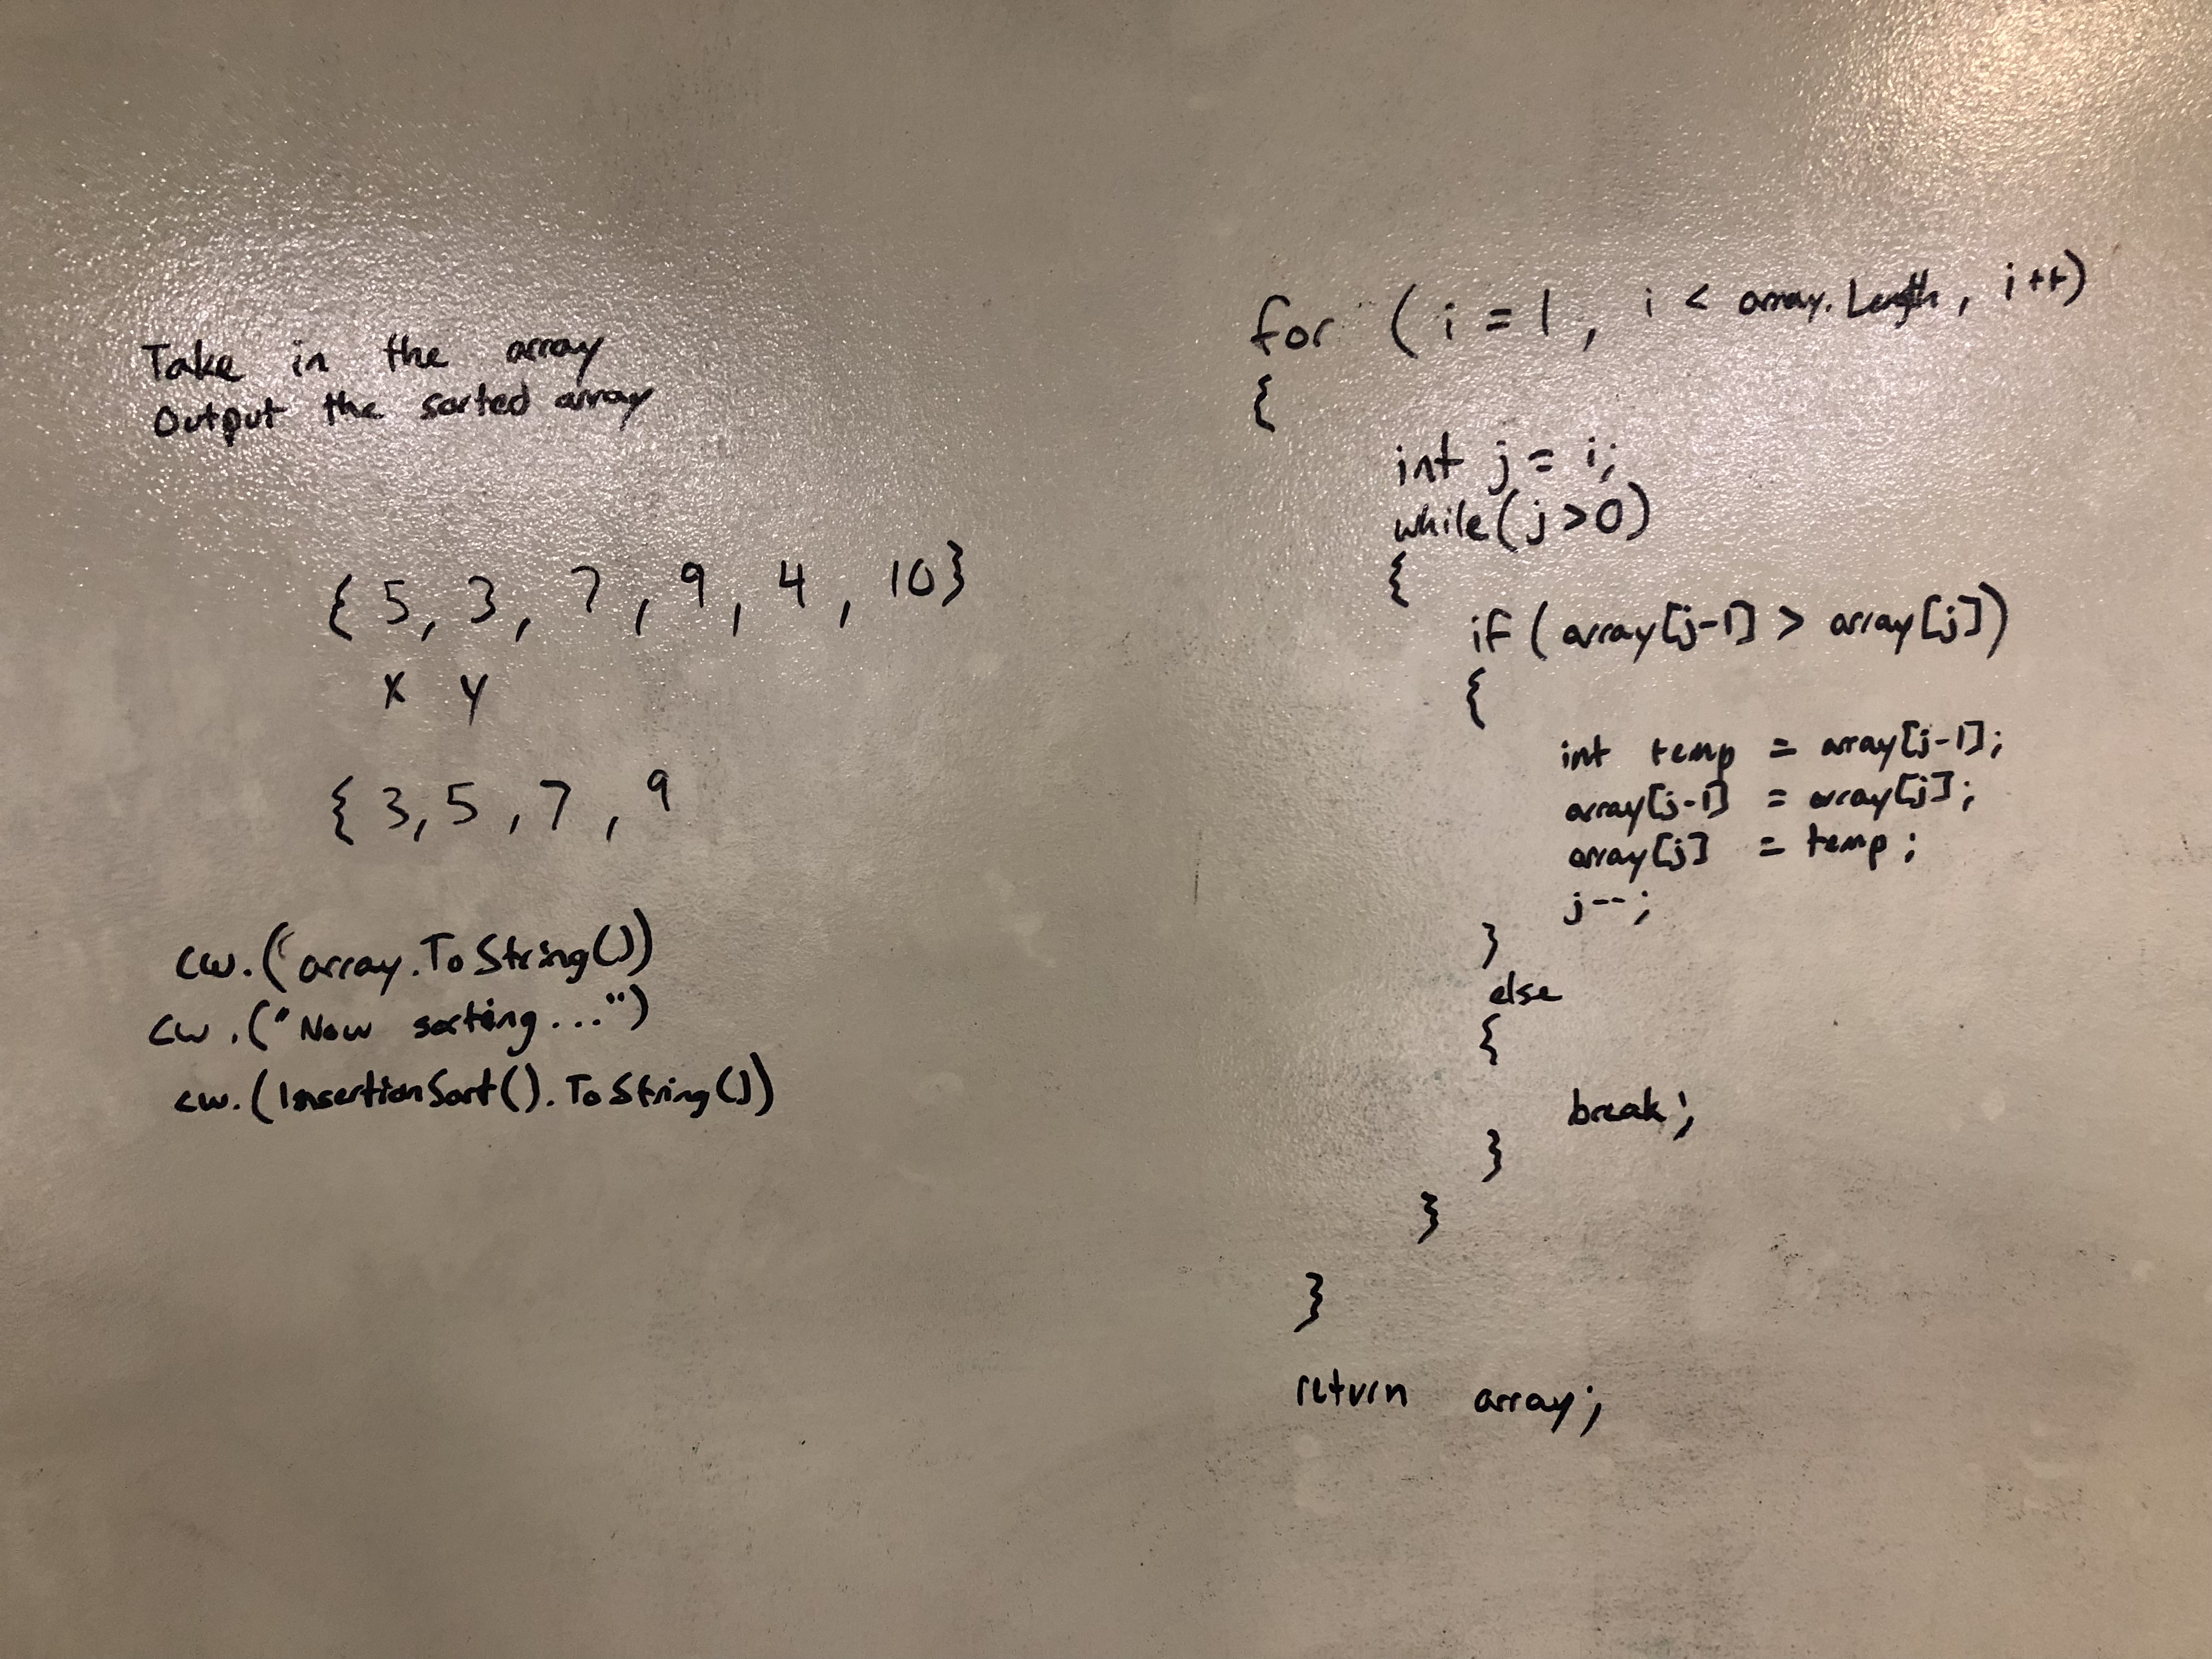 Take in the array
Output the sorted array
{ 5, 3, 7, 9, 4, 10}
x y
{ 3, 5, 7, 9
cw.(array.ToString())
cw.("Now sorting...")
cw.(InsertionSort().ToString())
for (i = 1, i < array.Length, i++)
{
int j = i;
while(j>0)
{
if (array[j-1] > array[j])
{
int temp = array[j-1];
array[j-1] = array[j];
array[j] = temp;
j--;
}
else
{
break;
}
}
}
return array;